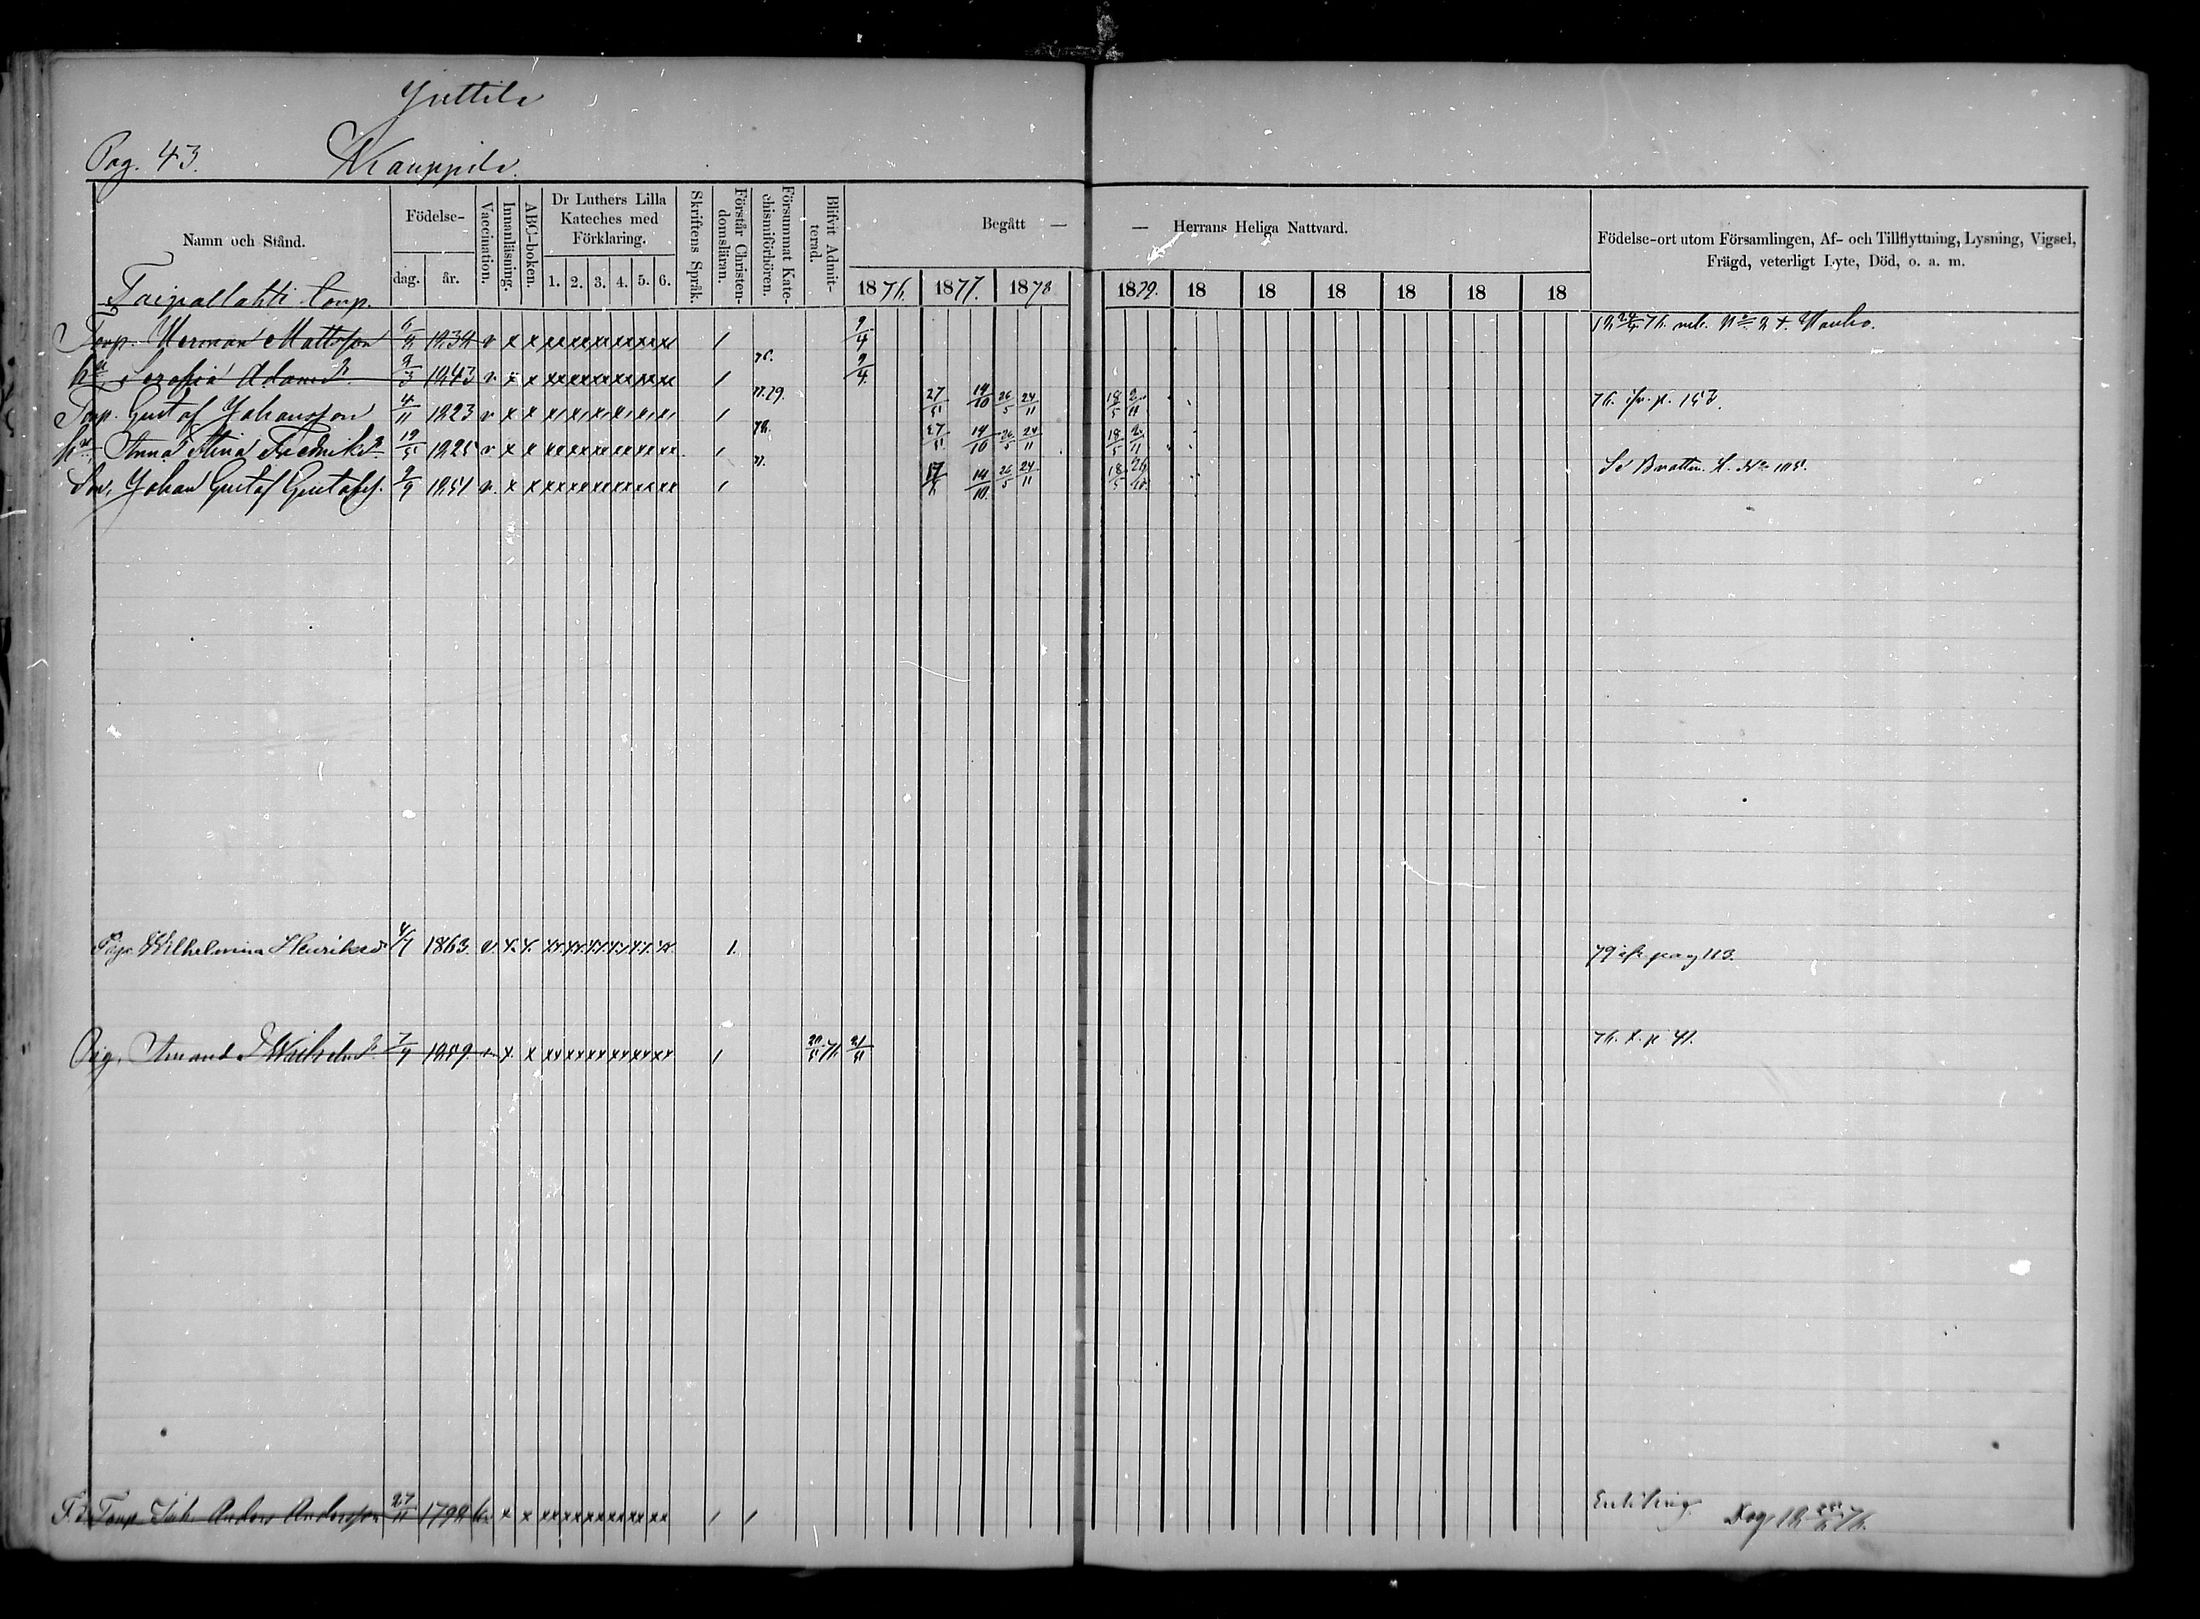 Juttila
Pag. 43. Kauppila.
Namn och Stånd.
Födelse-
dag. år.
Vaccination.
Innanläsning.
ABC-boken.
Dr Luthers Lilla Kateches med Förklaring.
1. 2. 3. 4. 5. 6.
Skriftens Språk.
Förstår Christen-domsläran.
Försummat Kate-chismiförhören.
Blifvit Admit-terad.
Begått — — Herrans Heliga Nattvard.
1876. 1877. 1878 1879. 18 18 18 18 18 18
Födelse-ort utom Församlingen, Af- och Tillflyttning, Lysning, Vigsel,
Frägd, veterligt Lyte, Död, o. a. m.
Taipallahti torp.
Torp. Herman Mattsson 1834 v x x xx xx xx xx xx xx / 9/4
Adamsd. 9/3 1843 v x x xx xx xx xx xx xx / 76. 9/4
Torp. Gustaf Johansson 4/11 1823 v x x xx xx xx xx xx xx / 77.79. 27/5 14/10 26/5 24/11 18/5 2/11 76. fr. p. 153.
hu Anna Stina Fredriksd 19/5 1825 v x x xx xx xx xx xx xx / 78. 27/5 14/10 26/5 24/11 18/5 2/11
Son, Johan Gustaf Gustafss. 1851 v. x x xx xx xx xx xx xx / 77. 14/10. 26/5 24/11 18/5 26/10
Pig. Wilhelmina Henriksd 4/7 1863. v. x. x. xx xx xx xx xx xx 1. 79 ifr pag 113.
Pig. Amanda 7/9 1859. v x. x xx xx xx xx xx xx / 20/5 76 21/5 76. t. p 41.
F.d. Torp. Anders Andersson 27/11 1792 x x xx xx xx xx xx xx / / Enkling. Dog 18 76.